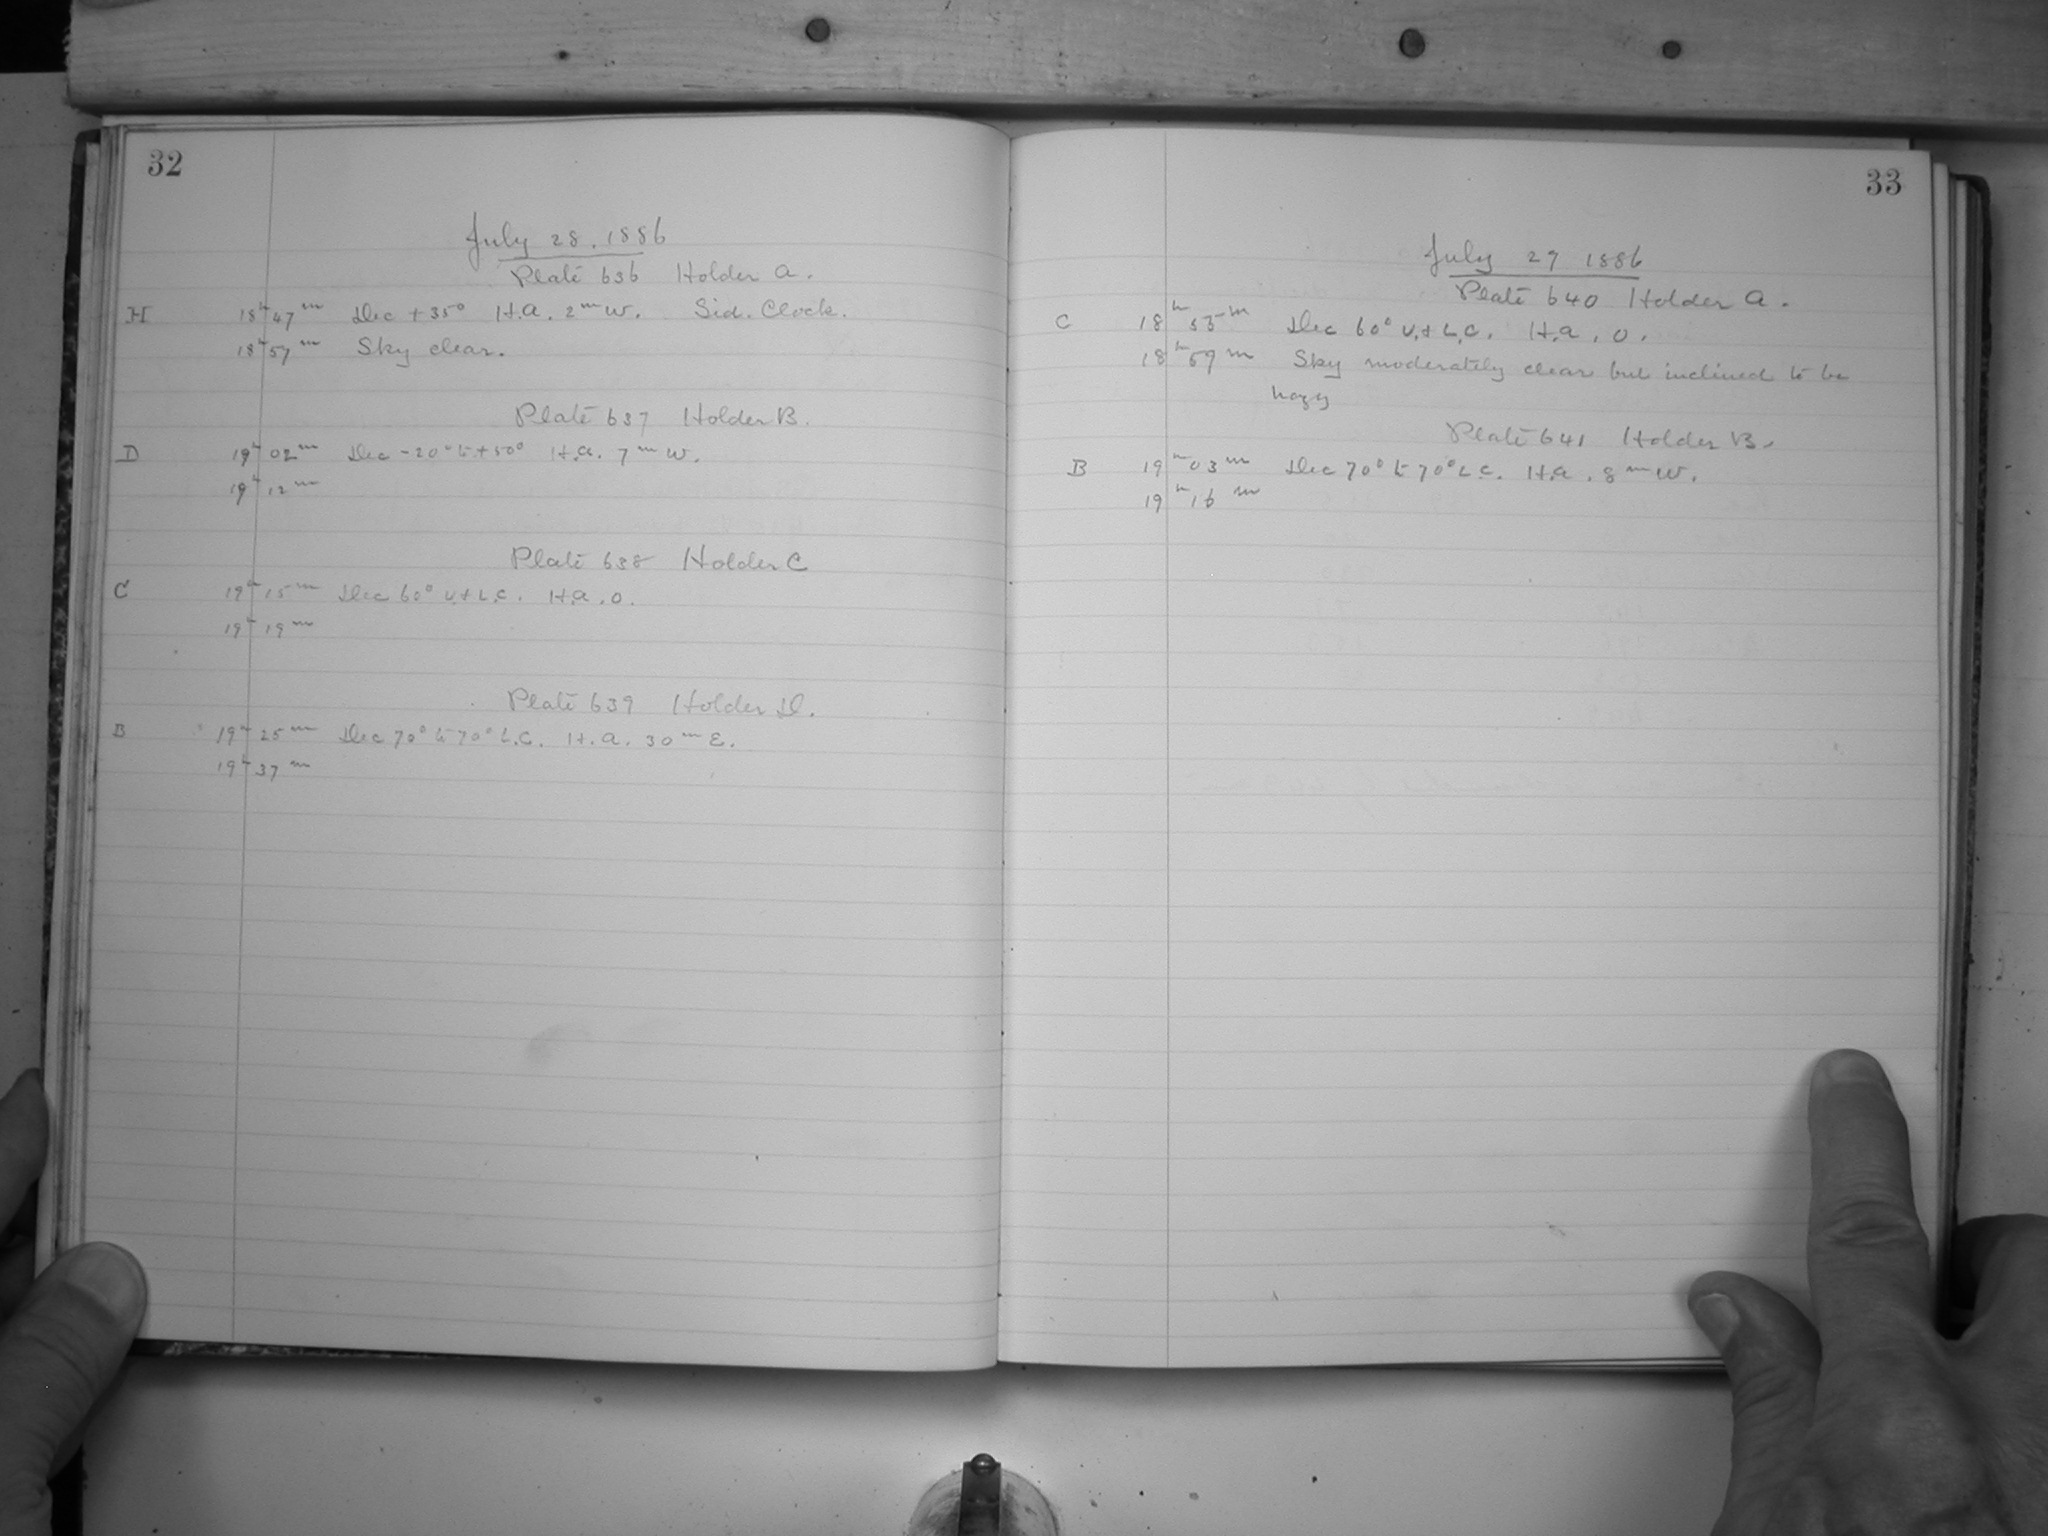 32
July 28, 1886
Plate 636 Holder A.
H 18h 47m Dec +35° H.A. 2m W. Sid. Clock.
18h 57m Sky clear.
Plate 637 Holder B.
D 19h 02m Dec -20° to +50° H.A. 7m W.
19h 12m
Plate 638 Holder C
C 19h 15m Dec 60° U.+L.C. H.A. 0.
19h 19m
Plate 639 Holder D.
B 19h 25m Dec 70° to 70° L.C. H.A. 30m E.
19h 37m
33
July 29 1886
Plate 640 Holder A.
C 18h 55m Dec 60° U.+L.C. H.A. 0.
18h 59m Sky moderately clear but inclined to be
hazy
Plate 641 Holder B.
B 19h 03m Dec 70° to 70° L.C. H.A. 8m W.
19h 16m